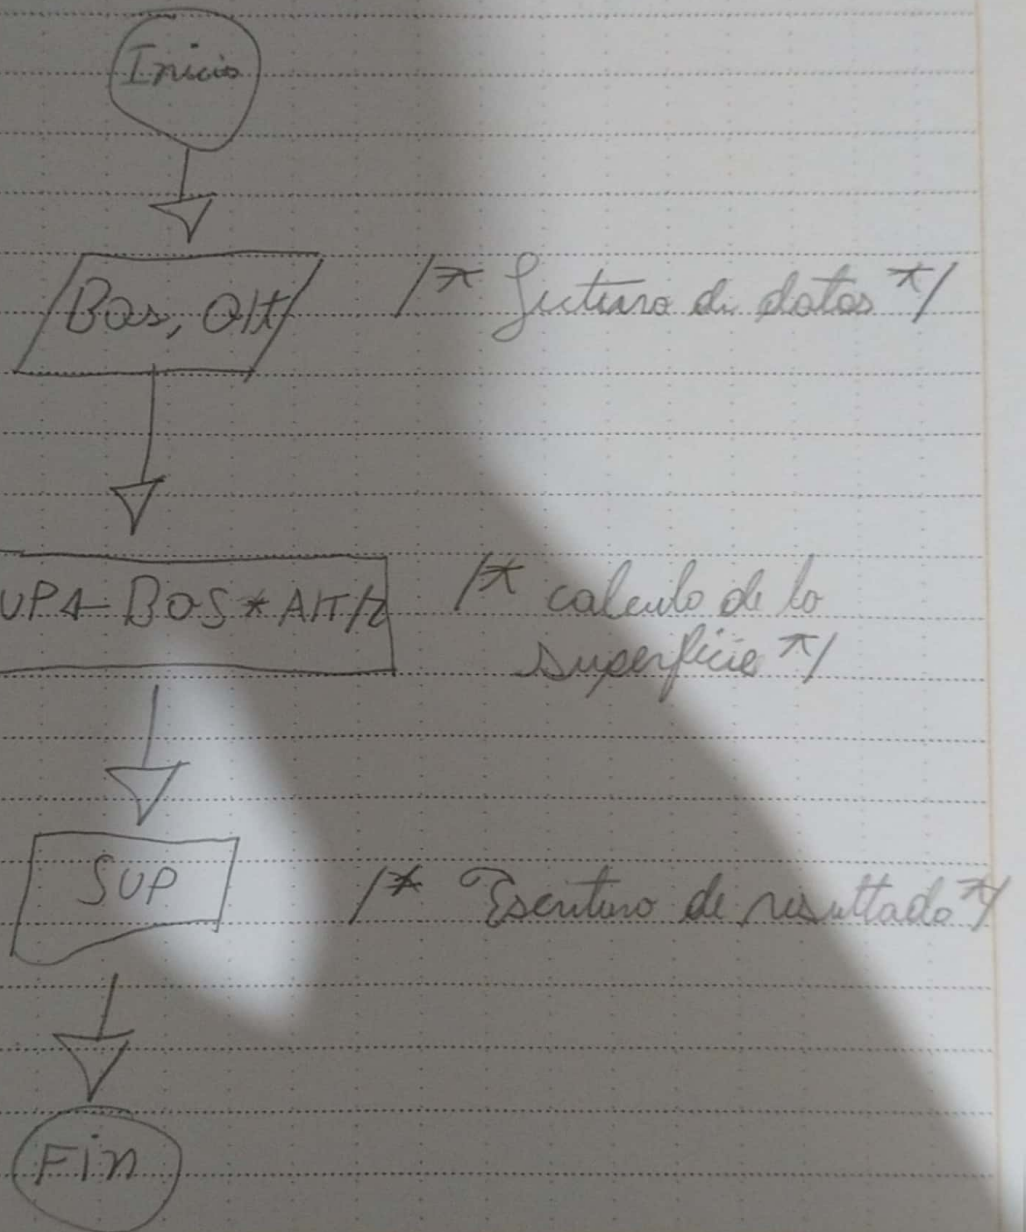 Inicio
Bas, Alt /* Lectura de datos */
UP ← BAS * AlT/2 /* calculo de la
superficie */
SUP /* Escritura de resultado */
Fin